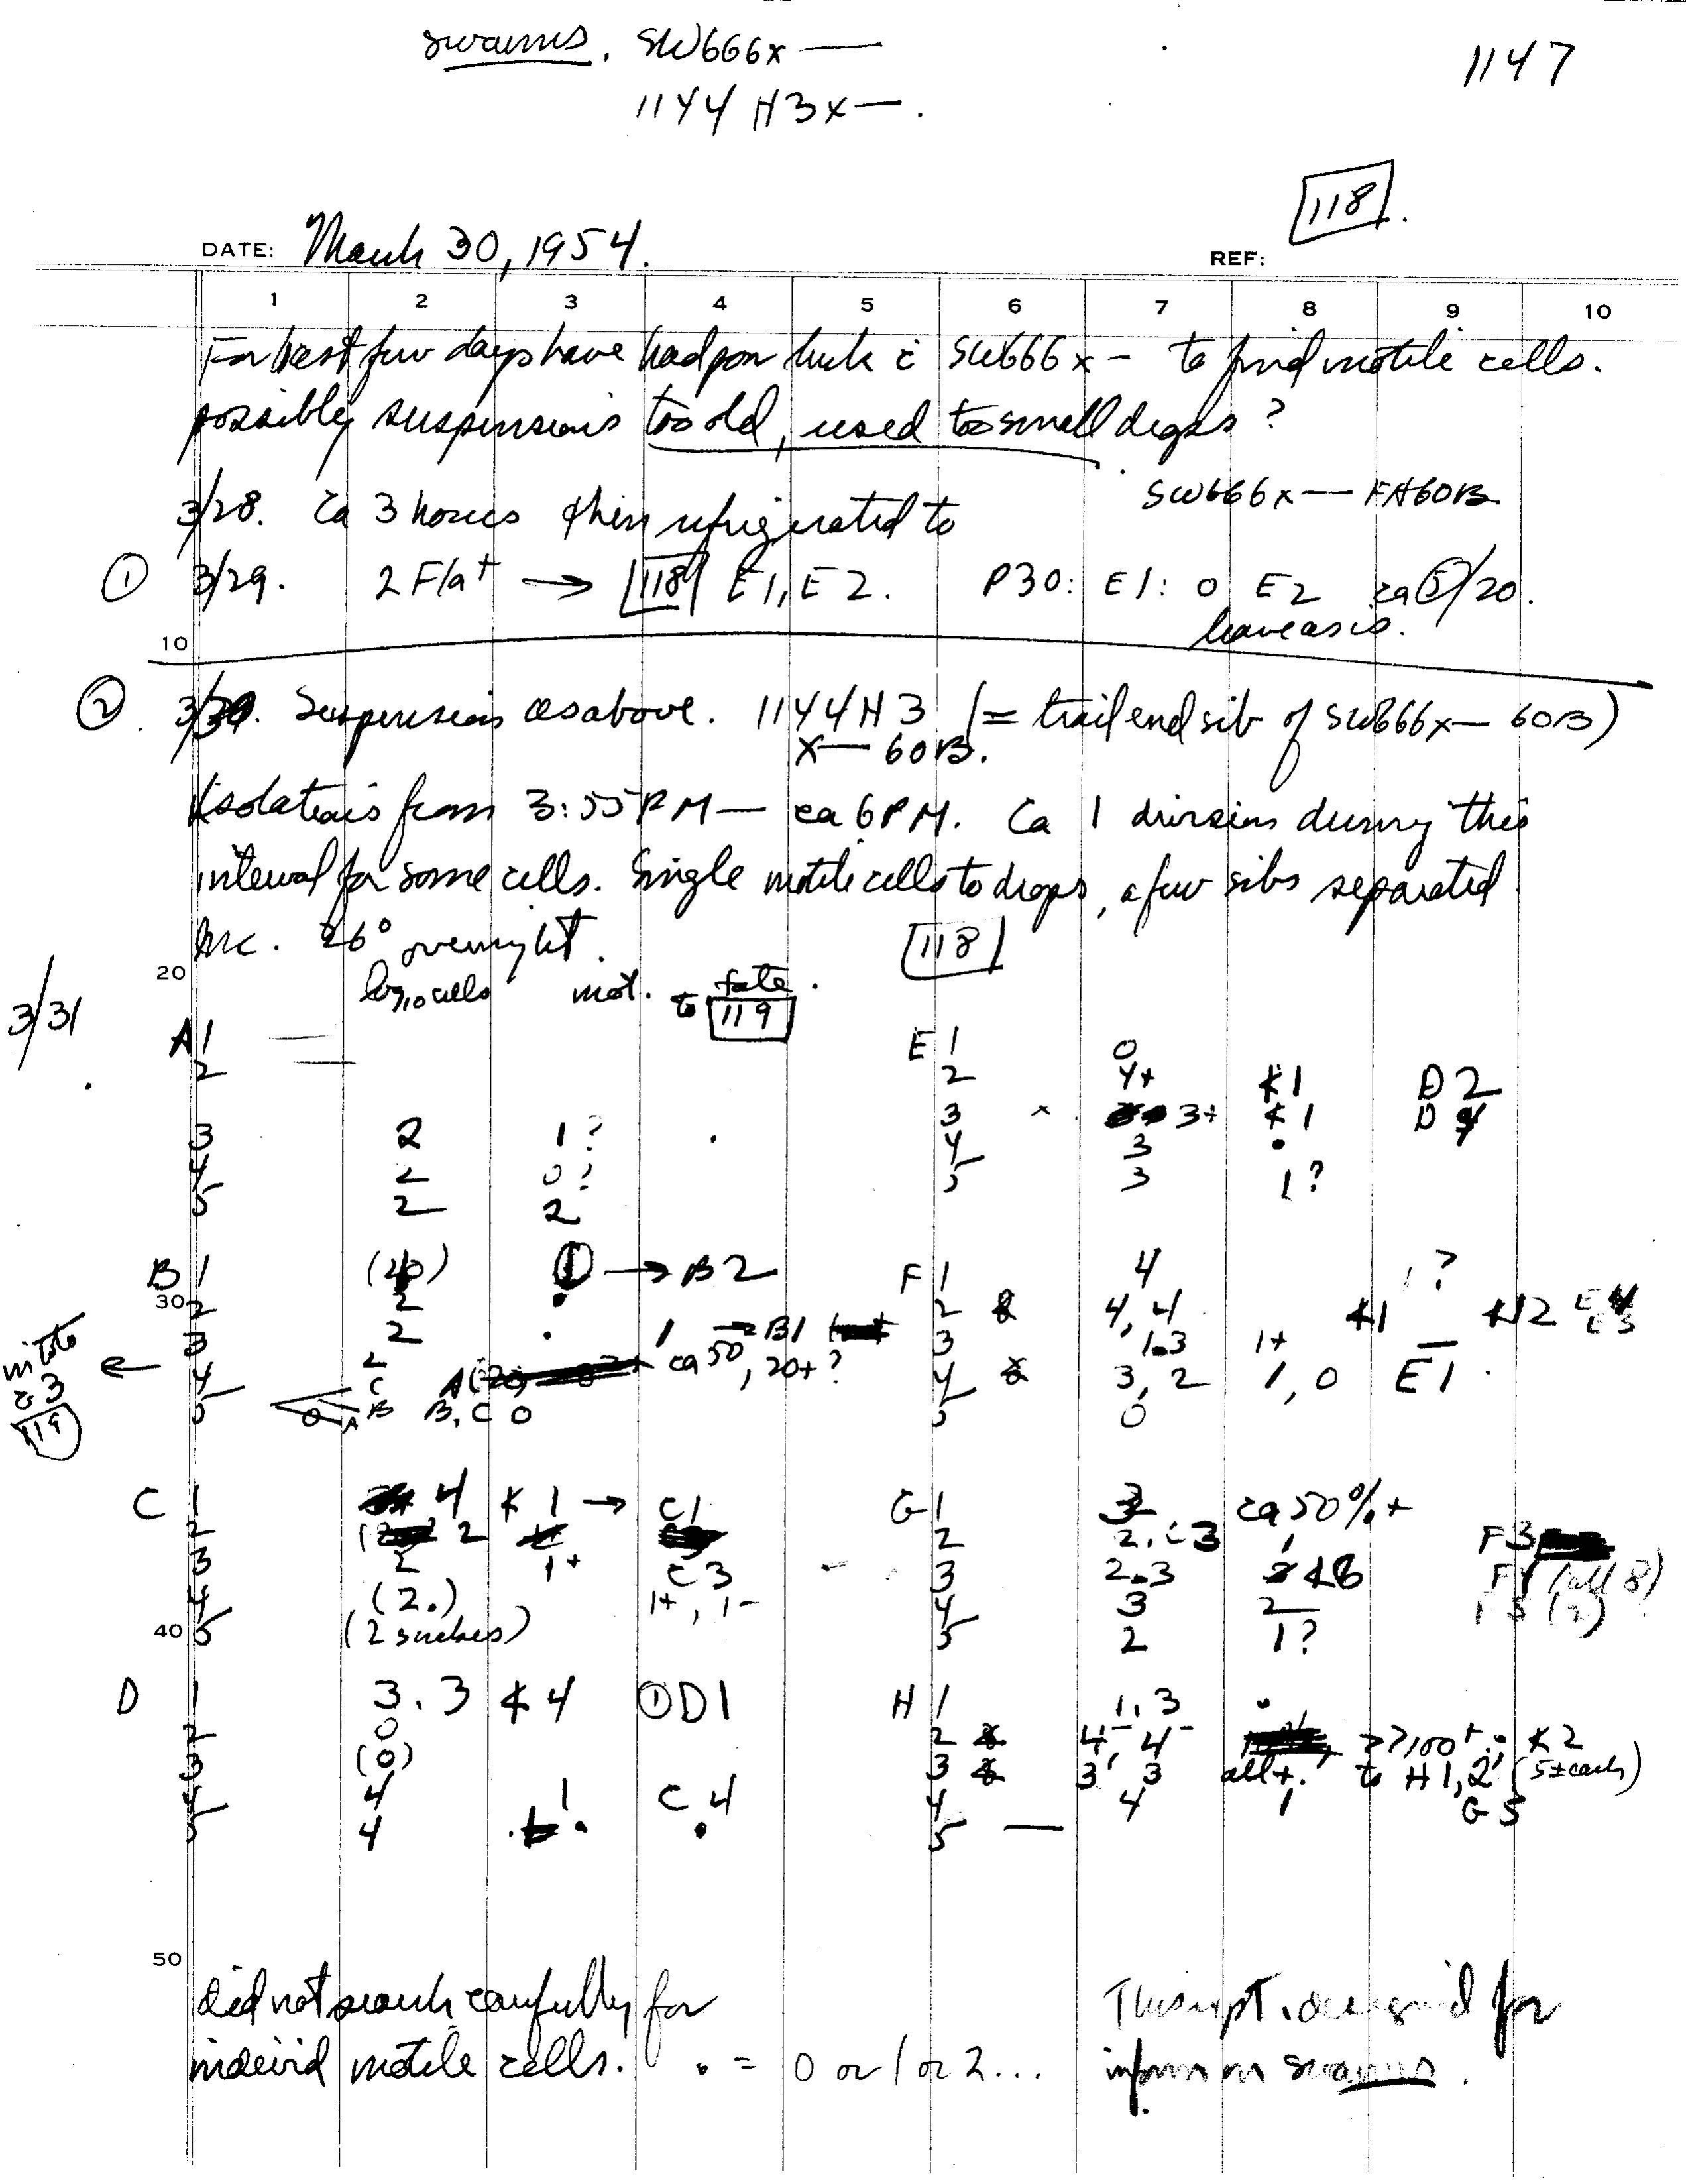 swarms. SW666x—
1144 H3x—.
1147
118.
DATE: March 30, 1954.
REF:
1 2 3 4 5 6 7 8 9 10
For past few days have had poor luck c̄ SW666x— to find motile cells.
possibly suspensions too old, used too small drops?
SW666x— FA60B.
3/28. Ca 3 hours then refrigerated to
① 3/29. 2 Fla+ → 118 E1, E2. P30: E1: 0 E2 ca 5/20.
leave as is.
10
② 3/30. Suspensions as above. 1144H3 (= trail end sib of SW666x— 60B)
x— 60B.
Isolations from 3:55PM— ca 6PM. Ca 1 division during this
interval for some cells. Single motile cells to drops, a few sibs separated.
Inc. 26° overnight.
118
20
3/31
log10 cells mot. fate.
to 119
A1 —
2 —
3 2 1?
4 2 0?
5 2 2
B1 (20) ① → B2
30
2 2 •
3 2 • 1 → B1
4 ca 50, 20+?
5 B, C 0
in toto
c̄ 3
119
C1 4 * 1 → C1
2 2
3 2 1+ C3
4 (2.) 1+, 1-
40
5 (2 suches)
D1 3.3 * 4 ① D1
2 0
3 (0)
4 4 1 C4
5 4 • •
E1 0
2 4+ *1 D2
3 3+ *1 D4
4 3 •
5 3 1?
F1 4 1?
2 4,4 *1 *12 E4
E3
3 1.3 1+ —
4 3,2 1,0 E1.
5 0
G1 3 ca 50%+
2 2. c 3 1 F3
3 2.3 *8 F1 (all 8)
4 3 2
5 2 1?
H1 1.3 •
2 4-, 4- >>100+. *2
3 3, 3 all+. to H1,2 (5± each)
4 4 1 G5
5 —
50
did not search carefully for
individ motile cells. • = 0 or 1 or 2...
This expt. designed for
inform on swarms.